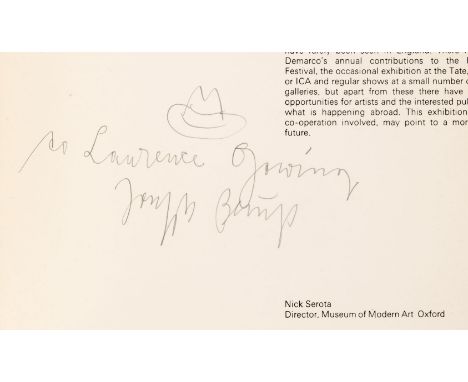 have rarely been seen in England. There
Demarco's annual contributions to the
Festival, the occasional exhibition at the Tate,
or ICA and regular shows at a small number o
galleries, but apart from these there have
opportunities for artists and the interested pul
what is happening abroad. This exhibition
co-operation involved, may point to a mor
future.
to Lawrence Gowing
Joseph Beuys
Nick Serota
Director, Museum of Modern Art Oxford